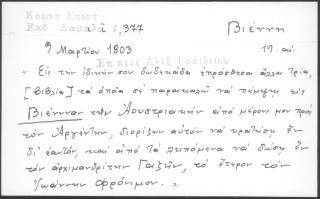 Κοραῆ Ἐπιστ
Ἐκδ Δαμαλᾶ 1,377
Βιέννη
9 Μαρτίου 1803
19. αἰ.
Ἀλεξ Βασιλείου
« Εἰς τὴν ἰδικήν σου δωδεκάδα ἐπρόσθεσα ἄλλα τρία,
[βιβλία] τὰ ὁποῖα σὲ παρακαλῶ νὰ πέμψῃς εἰς
Βιένναν τὴν Ἀουστριακὴν ἀπὸ μέρους μου πρὸς
τὸν Ἀργέντην, διορίζων αὐτὸν νὰ κρατήσῃ ἓν
δι' ἑαυτόν, καὶ ἀπὸ τὰ λειπόμενα νὰ δώσῃ ἓν
τὸν ἀρχιμανδρίτην Γαζῆν, τὸ ἕτερον τὸν
Ἰωάννην Φρόνιμον. »